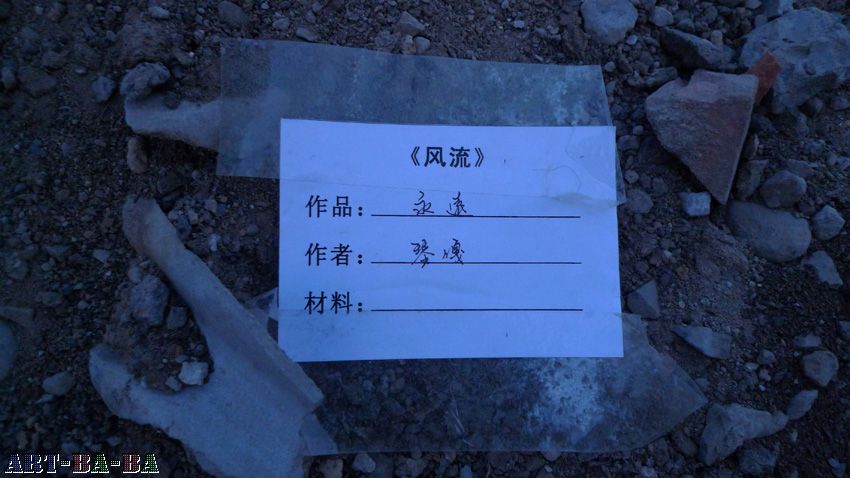 《风流》
作品：永远
作者：琴嘎
材料：
ART-BA-BA